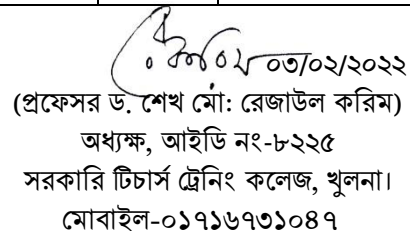 ০৩/০২/২০২২
(প্রফেসর ড. শেখ মো: রেজাউল করিম)
অধ্যক্ষ, আইডি নং-৮২২৫
সরকারি টিচার্স ট্রেনিং কলেজ, খুলনা।
মোবাইল-০১৭১৬৭৩১০৪৭